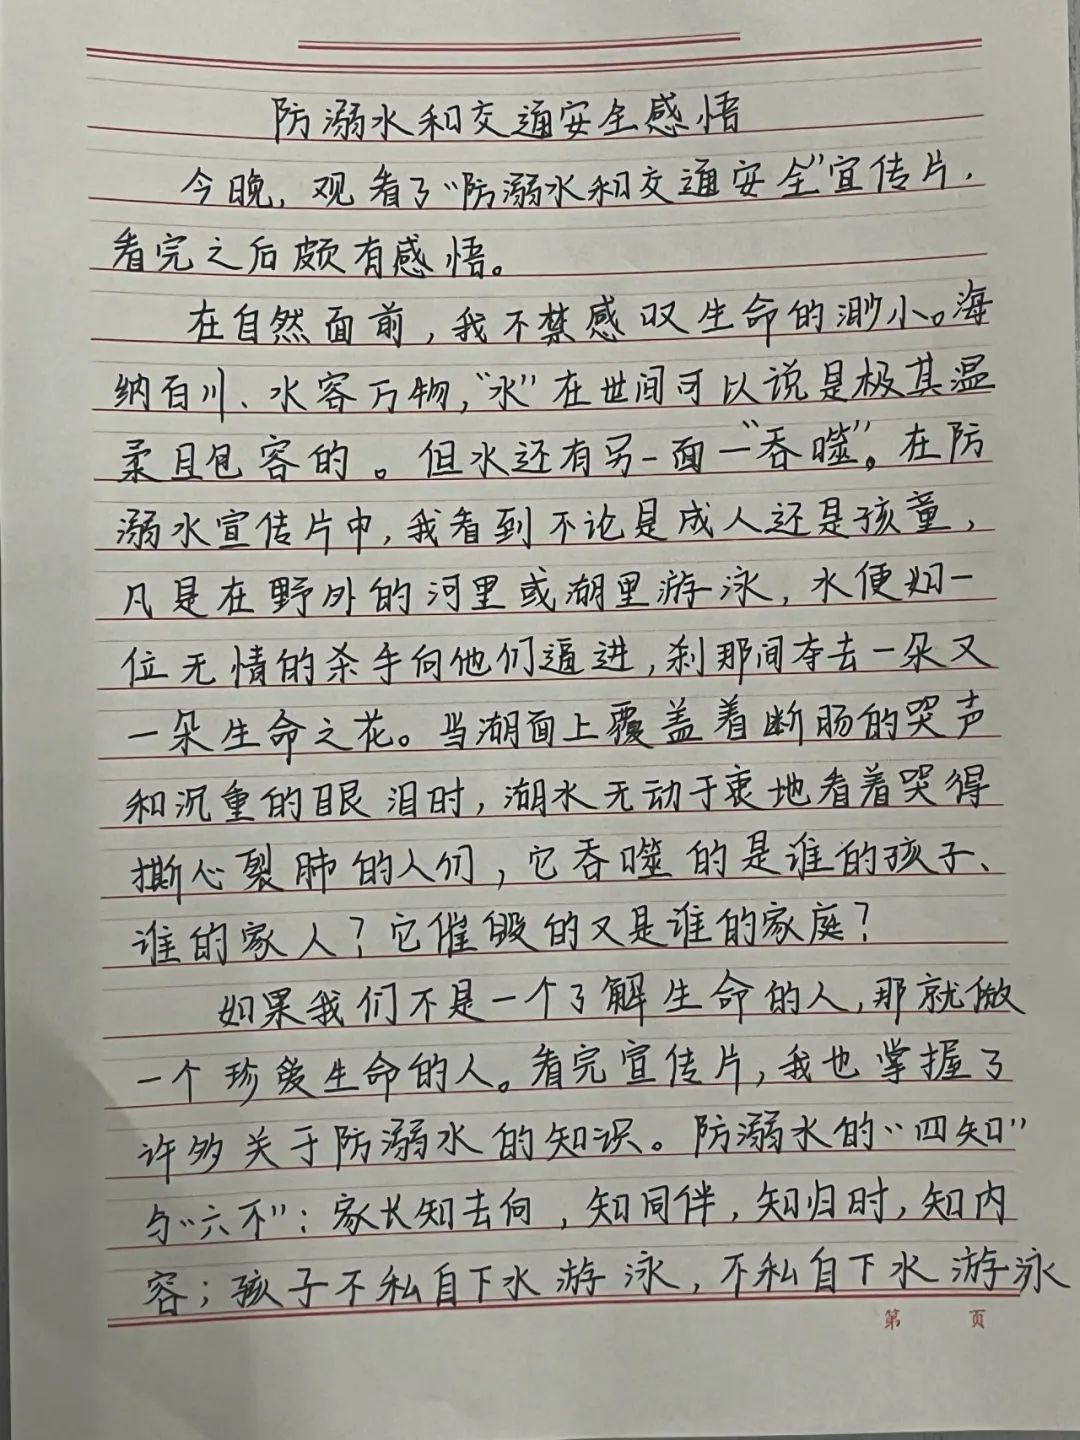 防溺水和交通安全感悟
今晚，观看了“防溺水和交通安全”宣传片，
看完之后颇有感悟。
在自然面前，我不禁感叹生命的渺小。海
纳百川、水容万物，“水”在世间可以说是极其温
柔且包容的。但水还有另一面一“吞噬”。在防
溺水宣传片中，我看到不论是成人还是孩童，
凡是在野外的河里或湖里游泳，水便如一
位无情的杀手向他们逼进，刹那间夺去一朵又
一朵生命之花。当湖面上覆盖着断肠的哭声
和沉重的眼泪时，湖水无动于衷地看着哭得
撕心裂肺的人们，它吞噬的是谁的孩子、
谁的家人？它催毁的又是谁的家庭？
如果我们不是一个了解生命的人，那就做
一个珍爱生命的人。看完宣传片，我也掌握了
许多关于防溺水的知识。防溺水的“四知”
与“六不”：家长知去向，知同伴，知归时，知内
容；孩子不私自下水游泳，不私自下水游泳
第 页